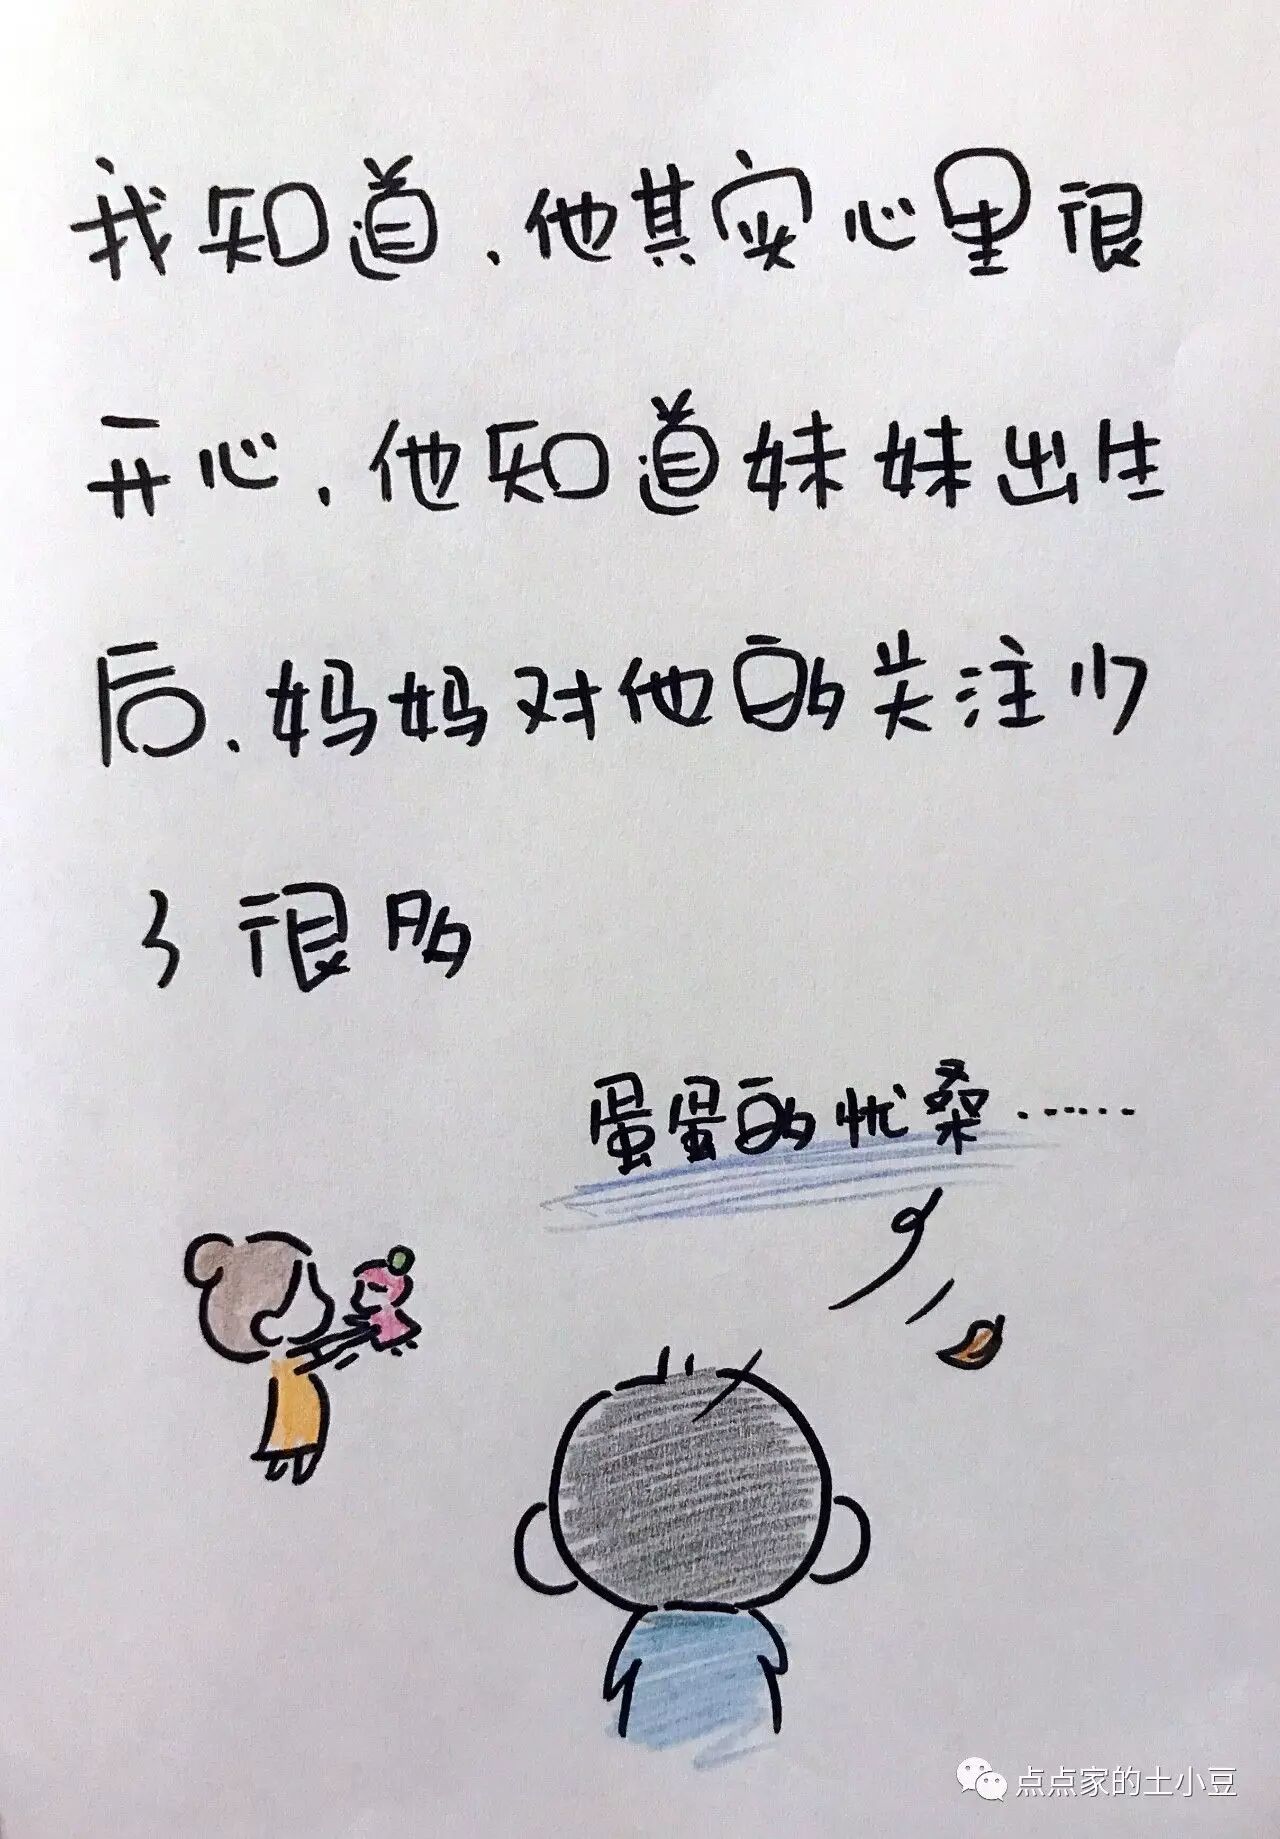 我知道,他其实心里很
开心,他知道妹妹出生
后,妈妈对他的关注少
了很多
蛋蛋的忧桑……
点点家的土小豆